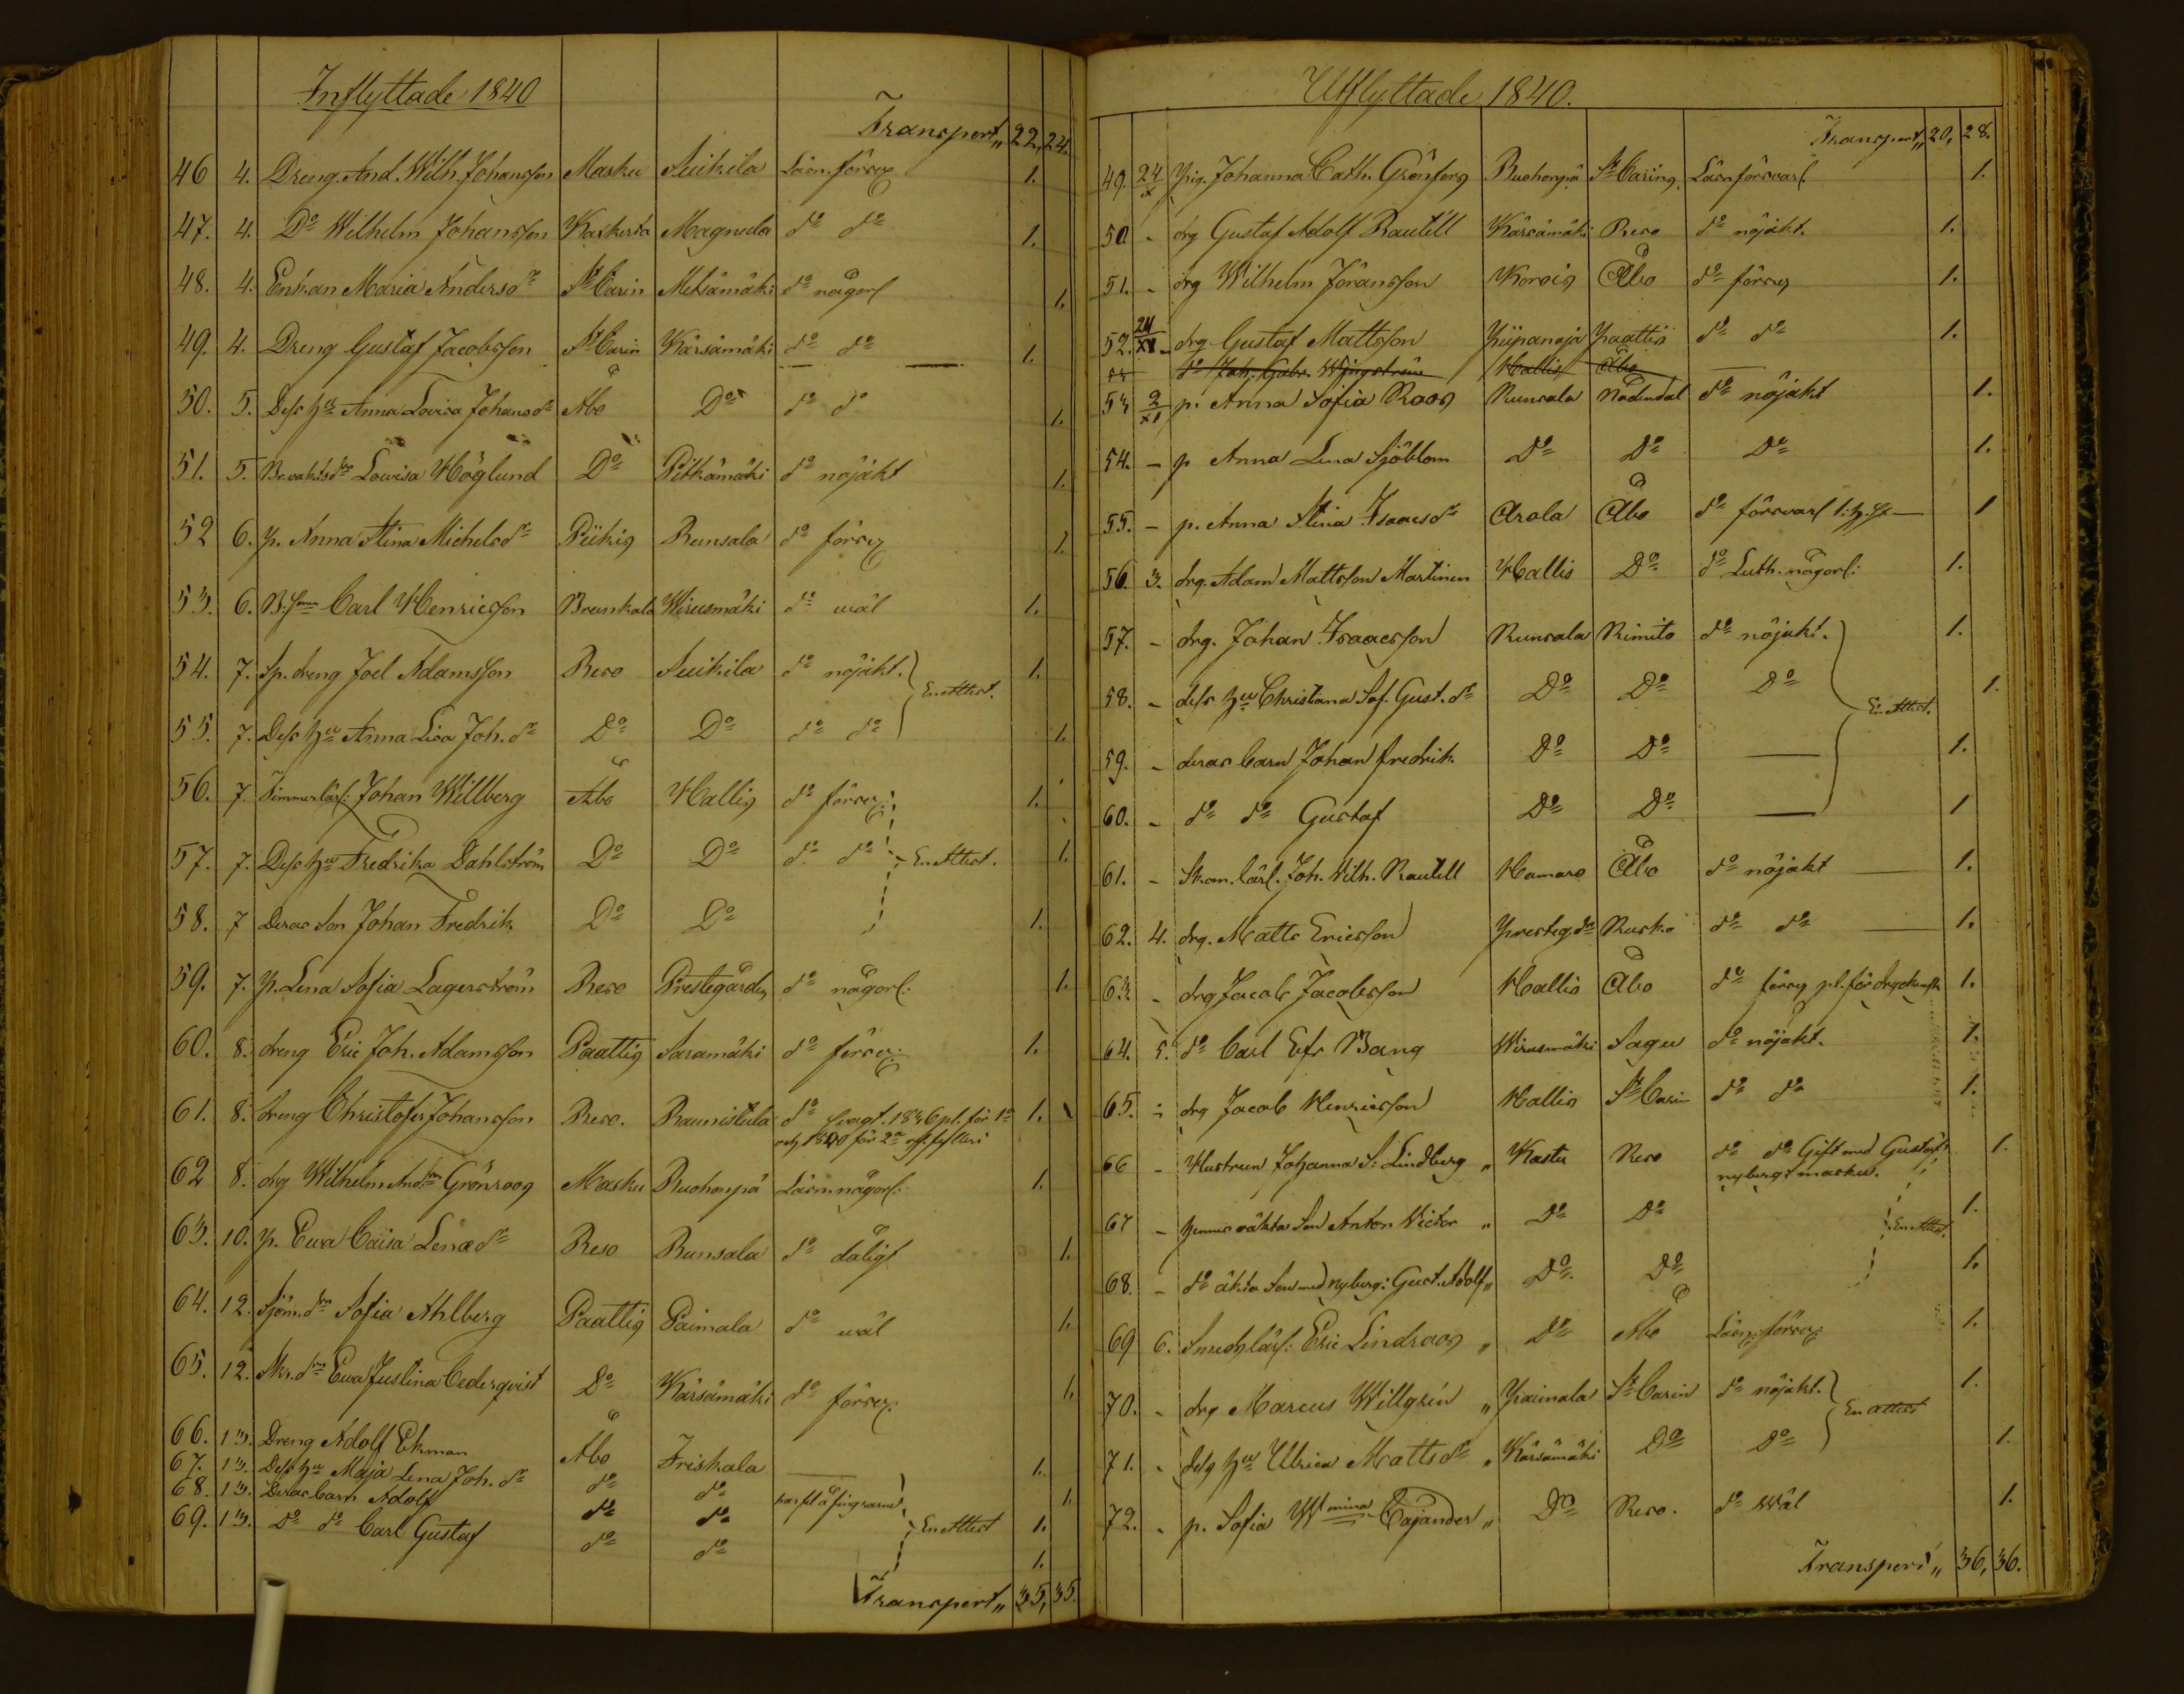 Inflyttade 1840
Transport„ 22, 24.
46 4. Dreng And. Wilh. Johansson Masku Suikila Läsn. försv. 1.
47. 4. Do Wilhelm Johansson Kaskerta Magnula do do 1.
48. 4. Enkan Maria Andersdr St Carin Metsämäki do någorl 1.
49. 4. Dreng Gustaf Jacobsson St Carin Kärsämäki do do 1.
50. 5. Dess hu Anna Lovisa Johansdr Åbo Do do do 1.
51. 5. Br.vaktsdr Lowisa Höglund Do Pitkämäki do nöjakt 1.
52 6. p. Anna Stina Michelsdr Piikis Runsala do försv. 1.
53. 6. Carl Henricsson Brunkala Wirusmäki do wäl 1.
54. 7. Sp. dreng Joel Adamsson Reso Suikila do nöjakt. 1.
En Attest.
55. 7. Dess hu Anna Lisa Joh. dr Do Do do do 1.
56. 7. Timmerlärl: Johan Willberg Åbo Hallis do försv. 1.
57. 7. Dess hu Fredrika Dahlström Do Do do do En Attest. 1.
58. 7 Deras Son Johan Fredrik Do Do 1.
59. 7. p. Lena Sofia Lagerström Reso Prestegården do någorl. 1.
60. 8. dreng Eric Joh. Adamsson Paattis Saramäki do försv. 1.
61. 8. dreng Christofer Johansson Reso. Raunistula do svagt. 1836 pl. för 1o 1.
och 1840 för 2a fylleri
62 8. drg Wilhelm And:son Grönroos Masku Ruohonpä Läsn. någorl: 1.
63. 10. p. Ewa Caisa Lenædr Reso Runsala do dåligt 1.
64. 12. Sjöm. dr Sofia Ahlberg Paattis Paimala do wäl 1.
65. 12. Skr. dr Ewa Justina Cederqvist Do Kärsämäki do försv. 1.
66. 13. Dreng Adolf Ekman Åbo Friskala 1.
67. 13. Dess hu Maja Lena Joh. dr do do 1.
68. 13. Deras barn Adolf do do En Attest 1.
69. 13. Do do Carl Gustaf do do 1.
Transport„ 35, 35.
Utflyttade 1840.
Transport„ 20, 28.
49. 24/x Pig. Johanna Cath. Grönfors Ruohonpä St Carins, Läsn försvarl. 1.
50 - drg Gustaf Adolf Rautell Kärsämäki Reso do nöjakt. 1.
51. - drg Wilhelm Göransson Korois Åbo do försv 1.
52. 24/XI - drg Gustaf Mattsson Piipanoja Paattis do do 1.
do Joh. Gabr. Wingström Hallis Åbo
53 2/XI p. Anna Sofia Roos Runsala Nådendal do nöjakt 1.
54. - p Anna Lena Sjöblom Do Do Do 1.
55. - p. Anna Stina Isaacsdr Arola Åbo do försvarl 1
56. 3. drg. Adam Mattsson Martinen Hallis Do do Luth. någorl: 1.
57. - drg. Johan Isaacsson Runsala Rimito do nöjakt. 1.
58. - dess hu Christiana Sof. Gust. dr Do Do Do 1.
En Attest.
59. - deras barn Johan Fredrik Do Do 1.
60. - do do Gustaf Do Do 1
61. - Skom. lärl. Joh. Wilh. Rautell Hamaro Åbo do nöjakt 1.
62. 4. drg. Matts Ericsson Presteg.dn Rusko do do 1.
63. - drg Jacob Jacobsson Hallis Åbo do försv pl. för dryckensk 1.
64. 5. do Carl Efr Bang Wirusmäki Sagu do nöjakt. 1.
65. - drg Jacob Henricsson Hallis St Carin do do 1.
66 - Hustrun Johanna S: Lindberg „ Kastu Reso do do Gift med Gustaf 1.
nyberg i masku.
67 - hennes oäkta Son Anton Victor „ Do Do En Attest. 1.
68. - do äkta Son med Nyberg: Gust. Adolf„ Do Do 1.
69 6. Smedslärl: Eric Lindroos „ Do Åbo Läsn. försv. 1.
70. - drg Marcus Willgrén „ Paimala St Carin do nöjakt. 1.
En attest
71. - dess hu Ulrica Mattsdr „ Kärsämäki Do Do 1.
72. - p. Sofia Wmina Cajander „ Do Reso. do wäl 1.
Transport„ 36, 36.